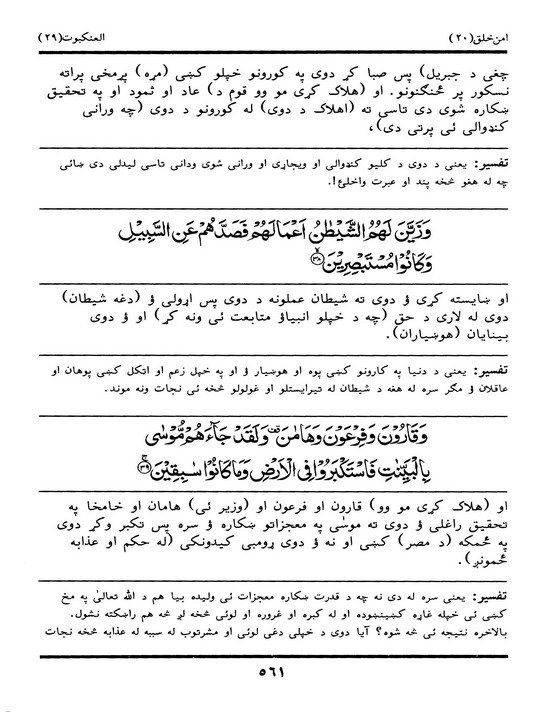 امن خلق (٢٠)
العنکبوت (٢٩)
چغی د جبریل) پس صبا کړ دوی په کورونو خپلو کښی (مړه) پړمخی پراته
نسکور پر ځنګنونو. او (هلاک کړی مو وو قوم د) عاد او ثمود او په تحقیق
ښکاره شوی دی تاسی ته (اهلاک د دوی) له کورونو د دوی (چه ورانی
کنډوالی ئی پرتی دی)،
تفسیر: یعنی د دوی د کلیو کنډوالی او ویجاړی او ورانی شوی ودانی تاسی لیدلی دی ښائی
چه له هغو څخه پند او عبرت واخلئ!.
وَزَيَّنَ لَهُمُ الشَّيْطٰنُ اَعْمَالَهُمْ فَصَدَّهُمْ عَنِ السَّبِيْلِ
وَكَانُوْا مُسْتَبْصِرِيْنَ ﴿٣٨﴾
او ښایسته کړی ؤ دوی ته شیطان عملونه د دوی پس اړولی ؤ (دغه شیطان)
دوی له لاری د حق (چه د خپلو انبیاؤ متابعت ئی ونه کړ) او ؤ دوی
بینایان (هوښیاران).
تفسیر: یعنی د دنیا په کارونو کښی پوه او هوښیار ؤ او په خپل زعم او اتکل کښی پوهان او
عاقلان ؤ مګر سره له هغه د شیطان له تیرایستلو او غولولو څخه ئی نجات ونه موند.
وَقَارُوْنَ وَفِرْعَوْنَ وَهَامٰنَ وَلَقَدْ جَآءَهُمْ مُّوْسٰى
بِالْبَيِّنٰتِ فَاسْتَكْبَرُوْا فِى الْاَرْضِ وَمَا كَانُوْا سٰبِقِيْنَ ﴿٣٩﴾
او (هلاک کړی مو وو) قارون او فرعون او (وزیر ئی) هامان او خامخا په
تحقیق راغلی ؤ دوی ته موسٰی په معجزاتو ښکاره ؤ سره پس تکبر وکړ دوی
په ځمکه (د مصر) کښی او نه ؤ دوی ړومبی کیدونکی (له حکم او عذابه
ځمونږ).
تفسیر: یعنی سره له دی نه چه د قدرت ښکاره معجزات ئی ولیده بیا هم د الله تعالیٰ په مخ
کښی ئی خپله غاړه کښینښوده او له کبره او غروره او لوئی څخه لږ څه هم راښکته نشول.
بالاخره نتیجه ئی څه شوه؟ آیا دوی د خپلی دغی لوئی او مشرتوب له سببه له عذابه څخه نجات
٥٦١